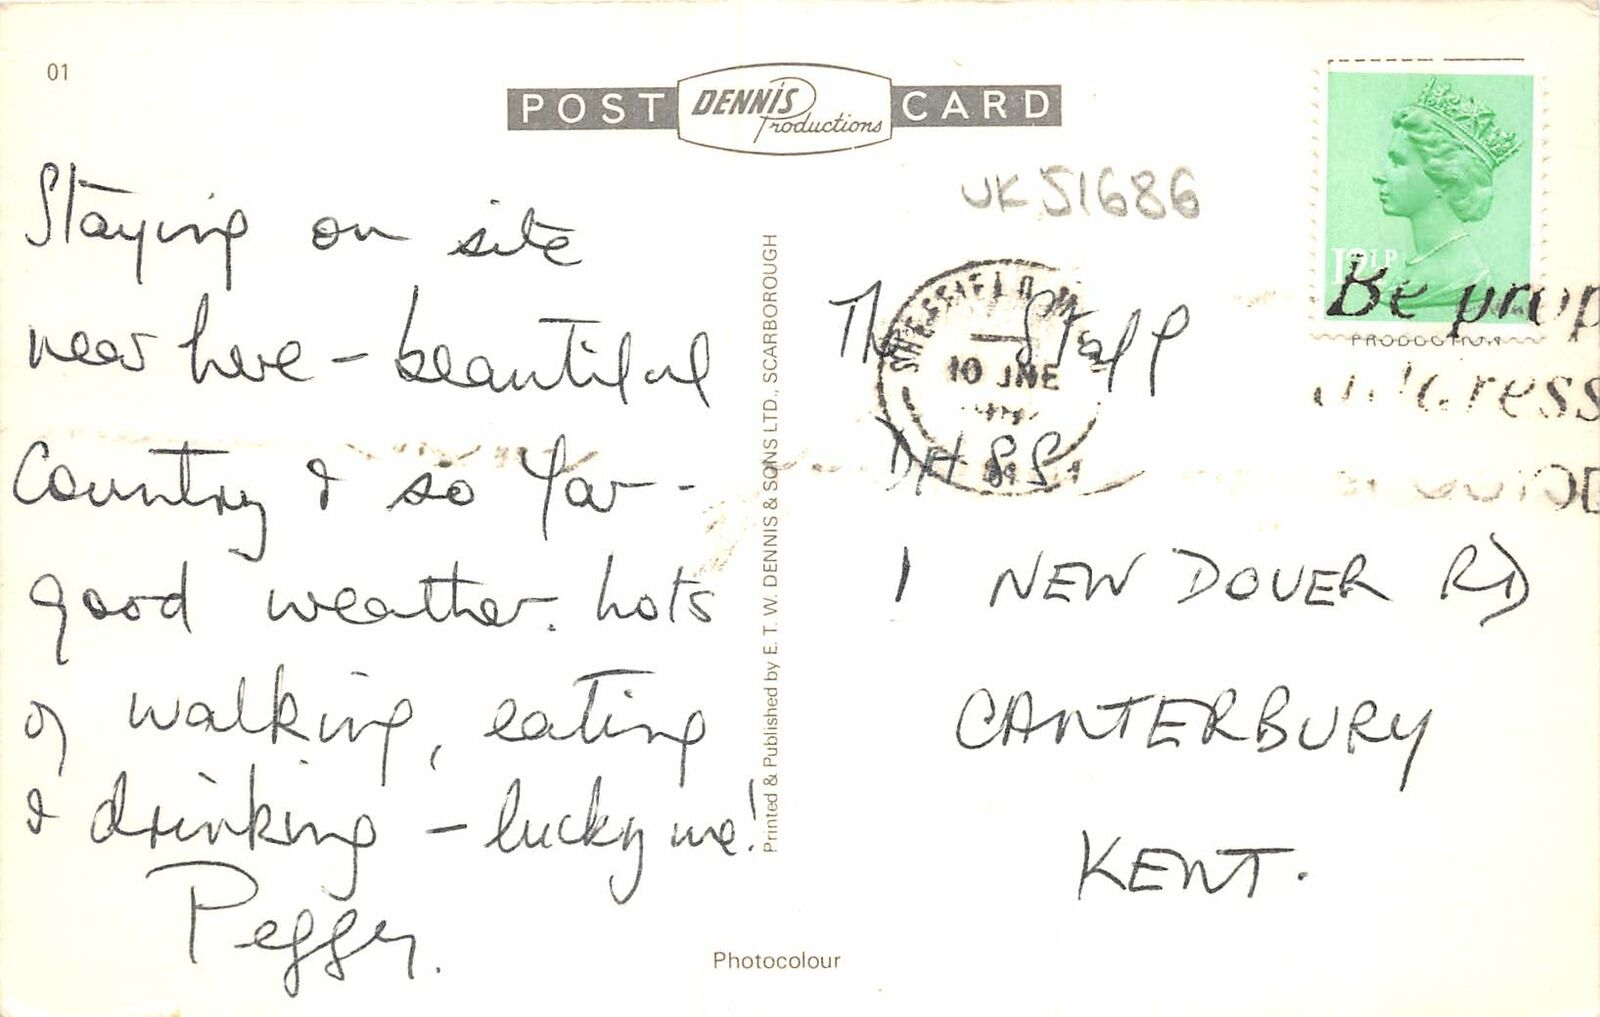 01
POST DENNIS Productions CARD
UK51686
Staying on site
near here - beautiful
Country & so far -
good weather. hots
of walking, eating
& drinking - lucky me!
Peggy.
Printed & Published by E. T. W. DENNIS & SONS LTD., SCARBOROUGH
Photocolour
12½P
SHEFFIELD
10 JNE
Be prop
The Staff
DHSS
1 NEW DOVER RD
CANTERBURY
KENT.